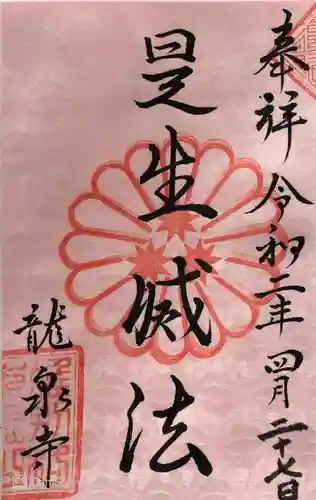 奉祥令和二年四月二十七日
是生滅法
龍泉寺